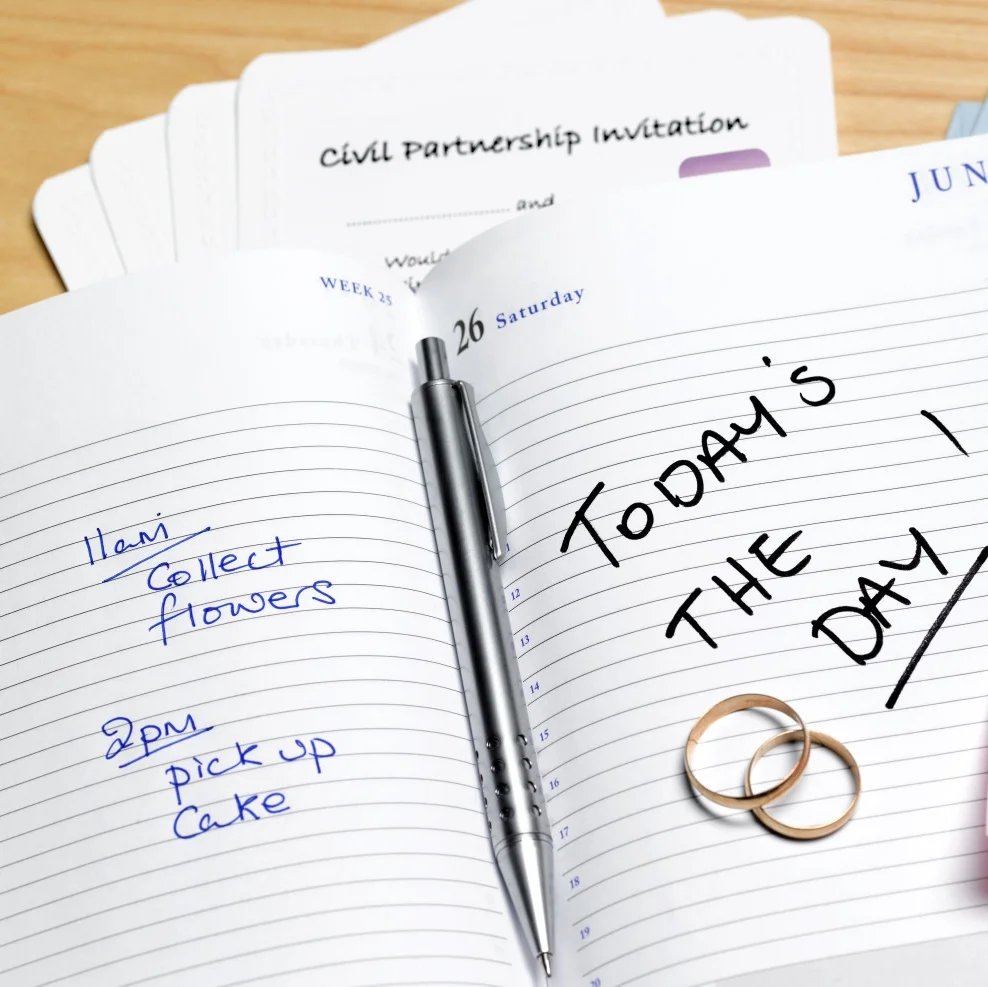 Civil Partnership Invitation
and
Would
JUN
WEEK 25
26 Saturday
11am
Collect
flowers
2pm
pick up
Cake
TODAY'S
THE
DAY
12
13
14
15
16
17
18
19
20